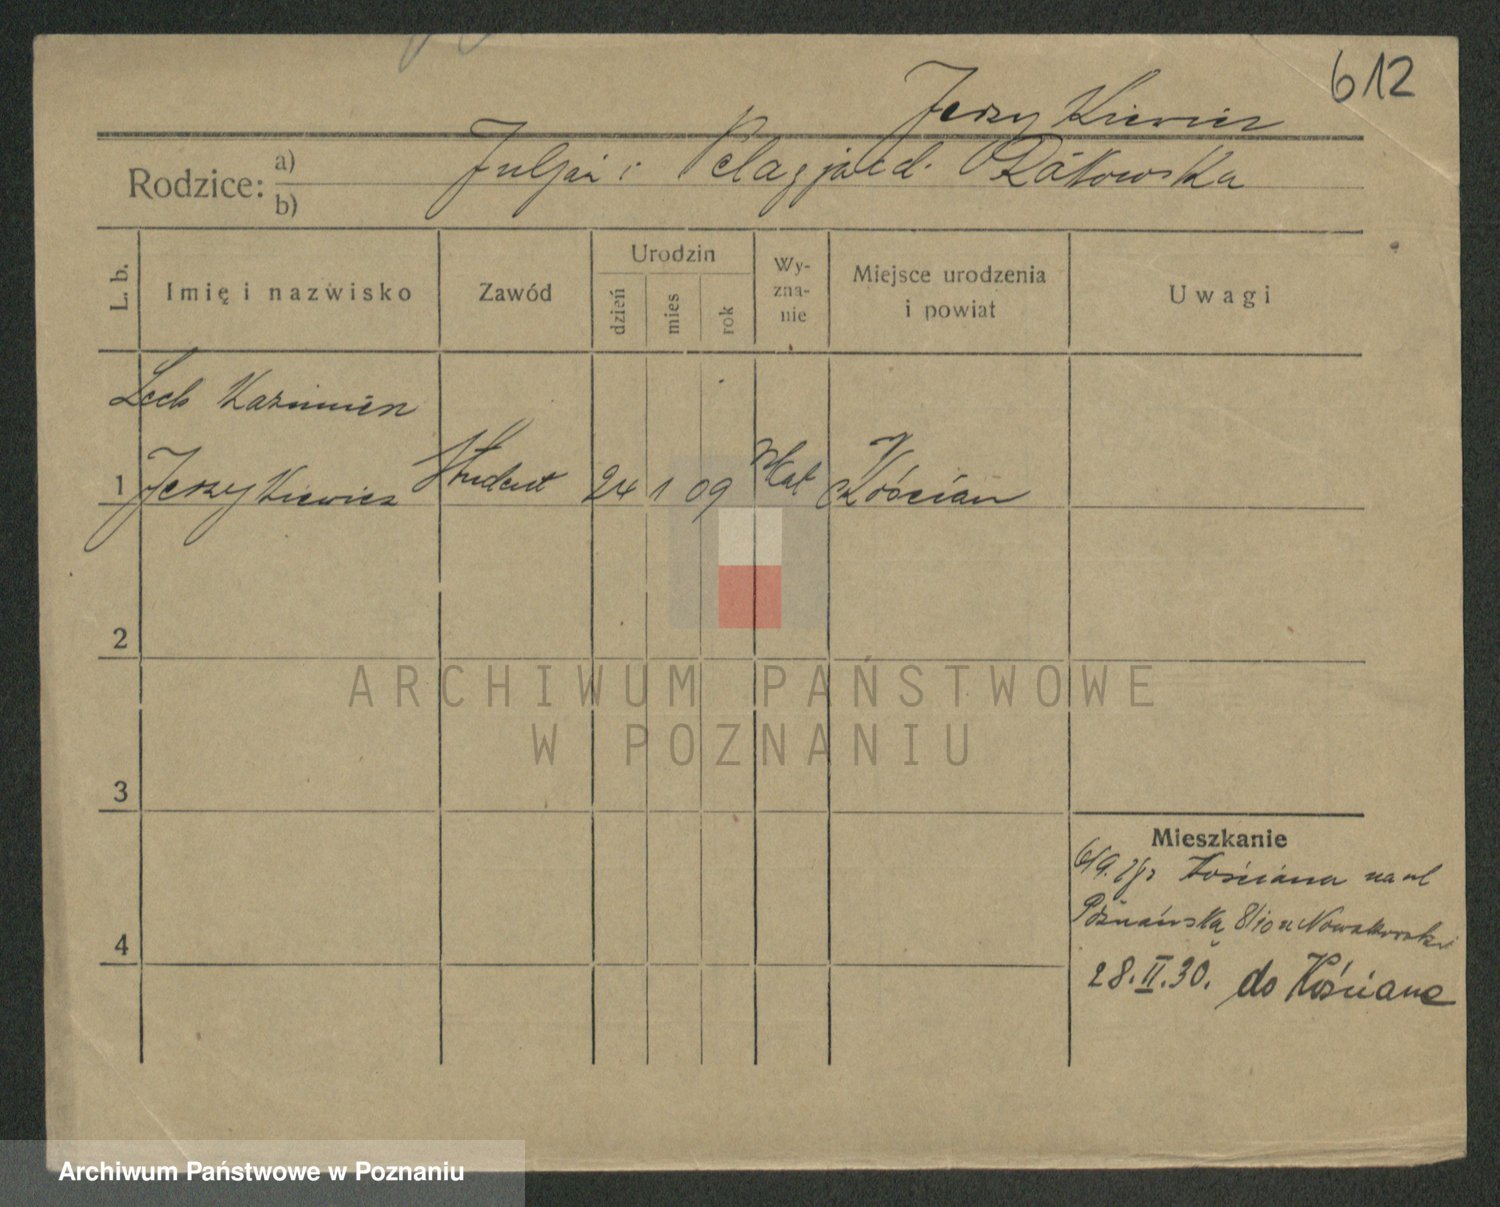 612
Jerzykiewicz
Rodzice: a) b)
Juljan i Pelagja z d. Rakowska
L. b.
Imię i nazwisko
Zawód
Urodzin
dzień
mies
rok
Wy-
zna-
nie
Miejsce urodzenia
i powiat
Uwagi
Lech Kazimierz
1 Jerzykiewicz Student 24 1 09 Kat Kościan
2
3
4
Mieszkanie
6/9. z Kościana na ul
Poznańską 8/10 u Nowakowski
28.II.30. do Kościana
ARCHIWUM PAŃSTWOWE
W POZNANIU
Archiwum Państwowe w Poznaniu